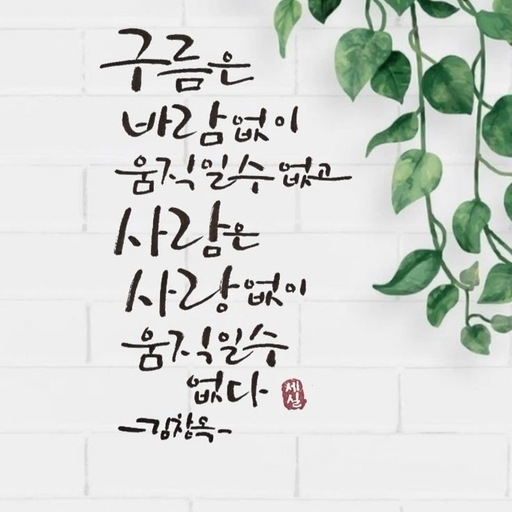 구름은
바람없이
움직일수 없고
사람은
사랑없이
움직일수
없다
제실
-김창옥-